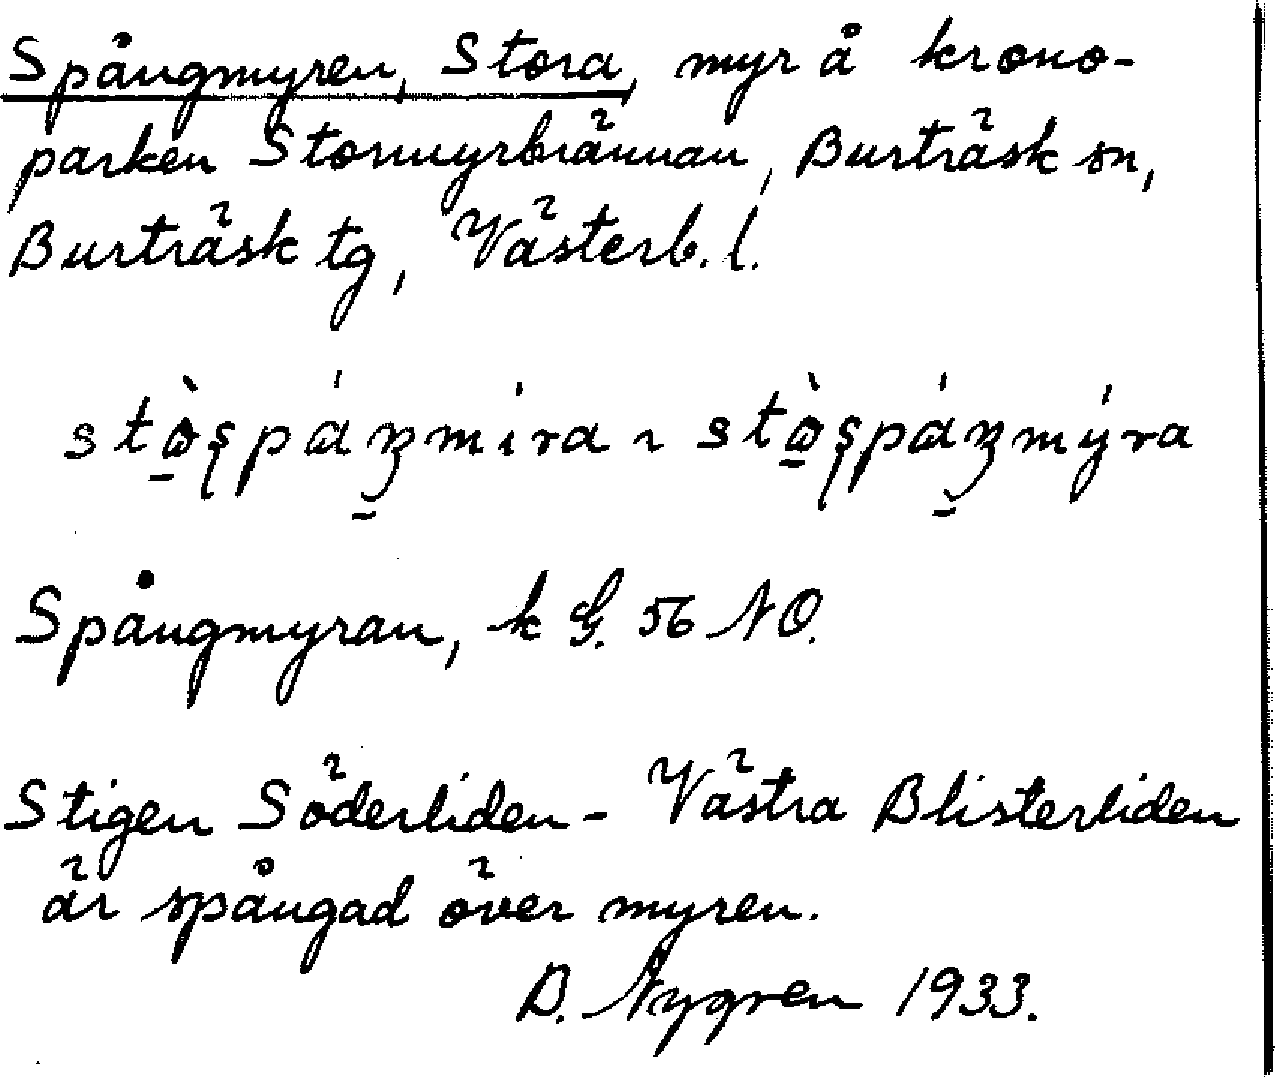 Spångmyren, Stora, myr å krono-
parken Stormyrbrännan, Burträsk sn,
Burträsk tg, Västerb. l.
Spångmyran, k G. 56 NO.
Stigen Söderliden - Västra Blisterliden
är spångad över myren.
B. Nygren 1933.